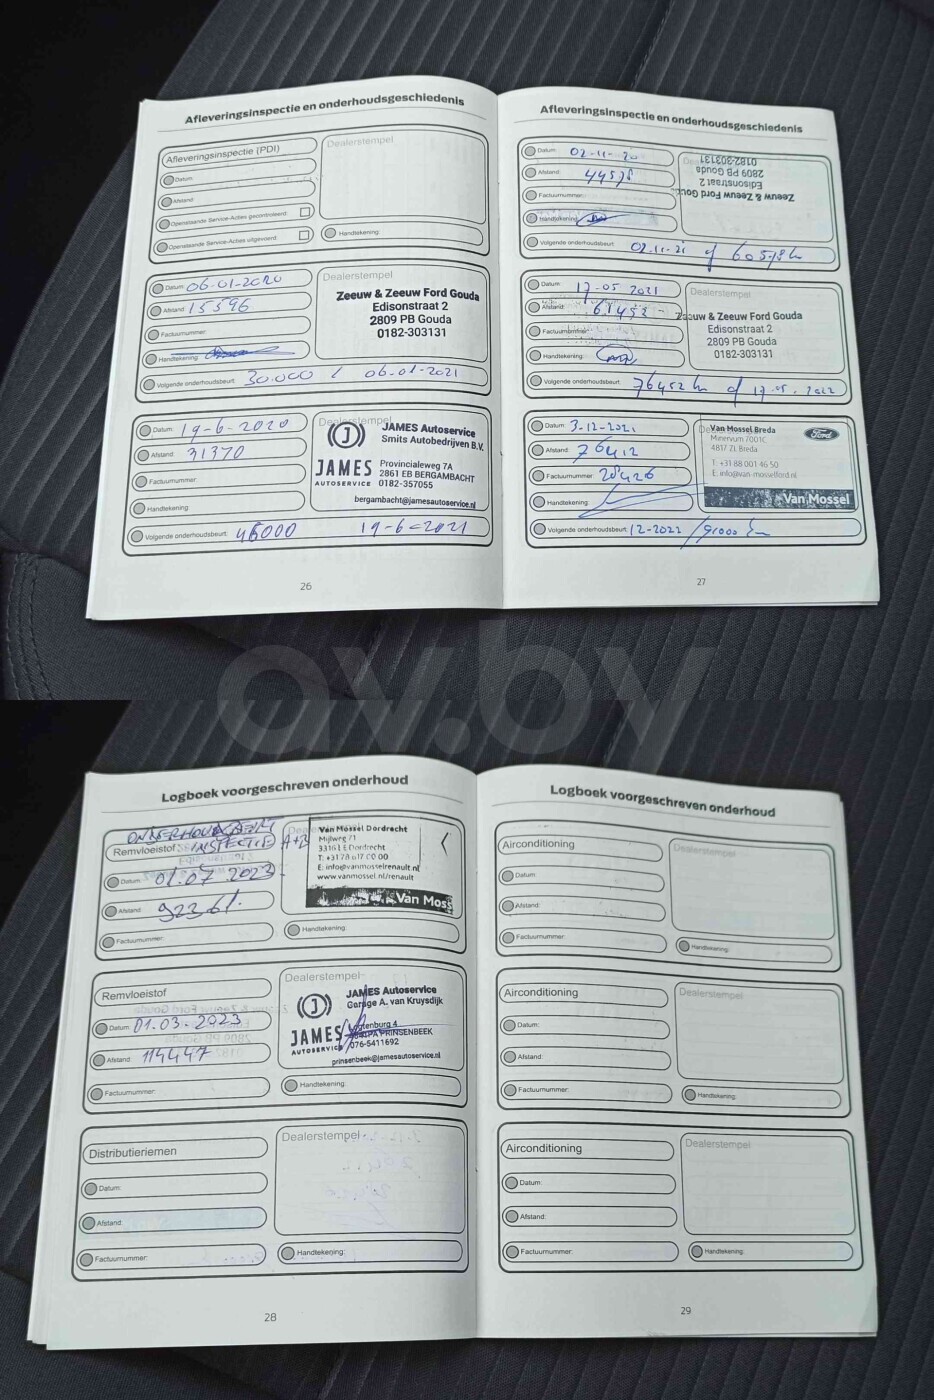 Afleveringsinspectie en onderhoudsgeschiedenis
Afleveringsinspectie (PDI)
Datum:
Afstand:
Openstaande Service-Acties gecontroleerd:
Openstaande Service-Acties uitgevoerd:
Dealerstempel
Handtekening:
Datum: 06-01-2020
Afstand: 15596
Factuurnummer:
Handtekening:
Volgende onderhoudsbeurt: 30.000 / 06-01-2021
Dealerstempel
Zeeuw & Zeeuw Ford Gouda
Edisonstraat 2
2809 PB Gouda
0182-303131
Datum: 19-6-2020
Afstand: 31370
Factuurnummer:
Handtekening:
Volgende onderhoudsbeurt: 46000 19-6-2021
Dealerstempel
J
JAMES
AUTOSERVICE
JAMES Autoservice
Smits Autobedrijven B.V.
Provincialeweg 7A
2861 EB BERGAMBACHT
0182-357055
bergambacht@jamesautoservice.nl
26
Afleveringsinspectie en onderhoudsgeschiedenis
Datum: 02-11-20
Afstand: 44578
Factuurnummer:
Handtekening:
Volgende onderhoudsbeurt: 02-11-21 of 60578 km
Zeeuw & Zeeuw Ford Gouda
Edisonstraat 2
2809 PB Gouda
0182-303131
Datum: 17-05 2021
Afstand: 61452
Factuurnummer:
Handtekening:
Volgende onderhoudsbeurt: 76452 km of 17-05-2022
Dealerstempel
Zeeuw & Zeeuw Ford Gouda
Edisonstraat 2
2809 PB Gouda
0182-303131
Datum: 3-12-2021
Afstand: 76412
Factuurnummer: 20426
Handtekening:
Volgende onderhoudsbeurt: 12-2022 / 91000 km
Van Mossel Breda
Minervum 7001C
4817 ZL Breda
T: +31 88 001 46 50
E: info@van-mosselford.nl
Ford
Van Mossel
27
av.by
Logboek voorgeschreven onderhoud
ONDERHOUDSBEURT
Remvloeistof INSPECTIE A+B
Datum: 01.07 2023
Afstand: 92361
Factuurnummer:
Van Mossel Dordrecht
Mijlweg 71
3316 LE Dordrecht
E: info@vanmosselrenault.nl
www.vanmossel.nl/renault
Van Moss
Handtekening:
Remvloeistof
Datum: 01.03.2023
Afstand: 114447
Factuurnummer:
Dealerstempel
J
JAMES
AUTOSERVICE
JAMES Autoservice
Garage A. van Kruysdijk
PRINSENBEEK
076-5411692
prinsenbeek@jamesautoservice.nl
Handtekening:
Distributieriemen
Datum:
Afstand:
Factuurnummer:
Dealerstempel
Handtekening:
28
Logboek voorgeschreven onderhoud
Airconditioning
Datum:
Afstand:
Factuurnummer:
Dealerstempel
Handtekening:
Airconditioning
Datum:
Afstand:
Factuurnummer:
Dealerstempel
Handtekening:
Airconditioning
Datum:
Afstand:
Factuurnummer:
Dealerstempel
Handtekening:
29